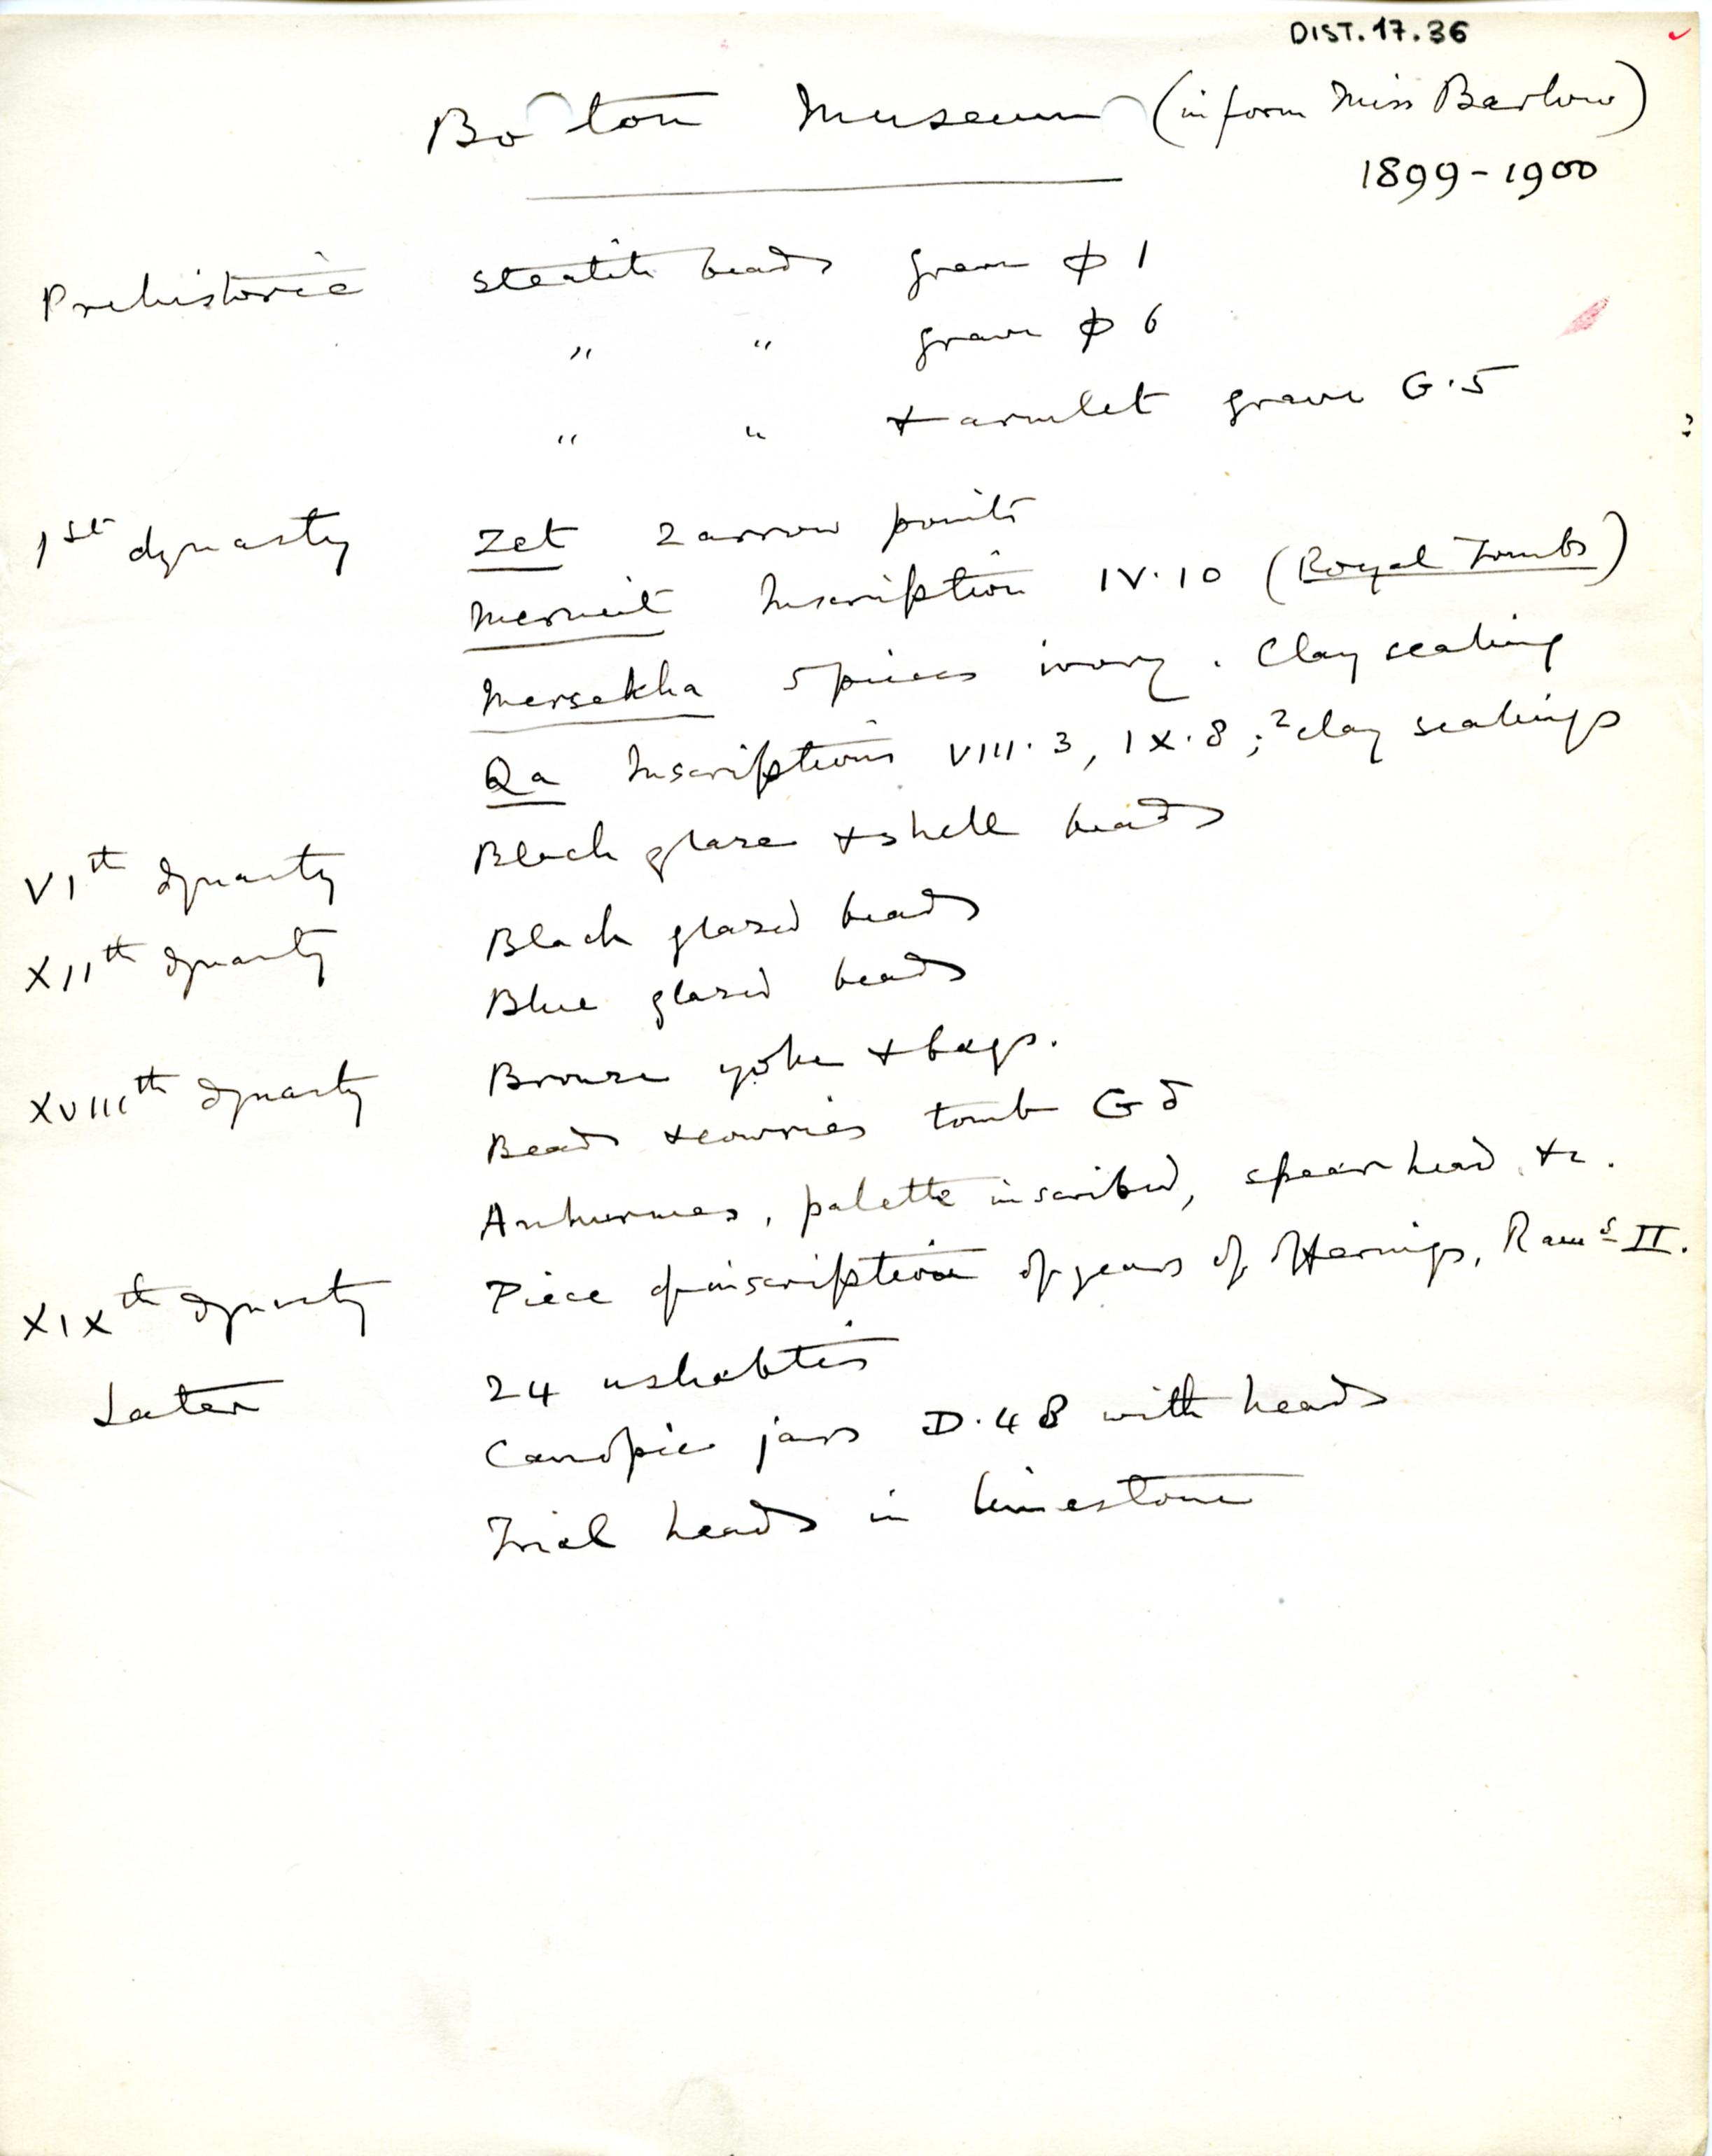 DIST.17.36
Bo ton Museum (inform Miss Barlow)
1899-1900
Prehistoric steatite beads grave φ 1
" " grave φ 6
" " + armlet grave G.5
1st dynasty Zet 2 arrow points
Merneit Inscription IV.10 (Royal Tombs)
Mersekha 5 pieces ivory. Clay sealing
Qa Inscriptions VIII.3, IX.8; 2 clay sealings
VIth dynasty Black glaze + shell beads
XIIth dynasty Black glazed beads
Blue glazed beads
XVIIIth dynasty Bronze yoke + bags.
Beads + cowries tomb G δ
Anhurmes, palette inscribed, spear head &c.
XIXth dynasty Piece of inscription of years of offerings, Rams II.
Later 24 ushabtis
Canopic jars D.48 with heads
Trial heads in limestone